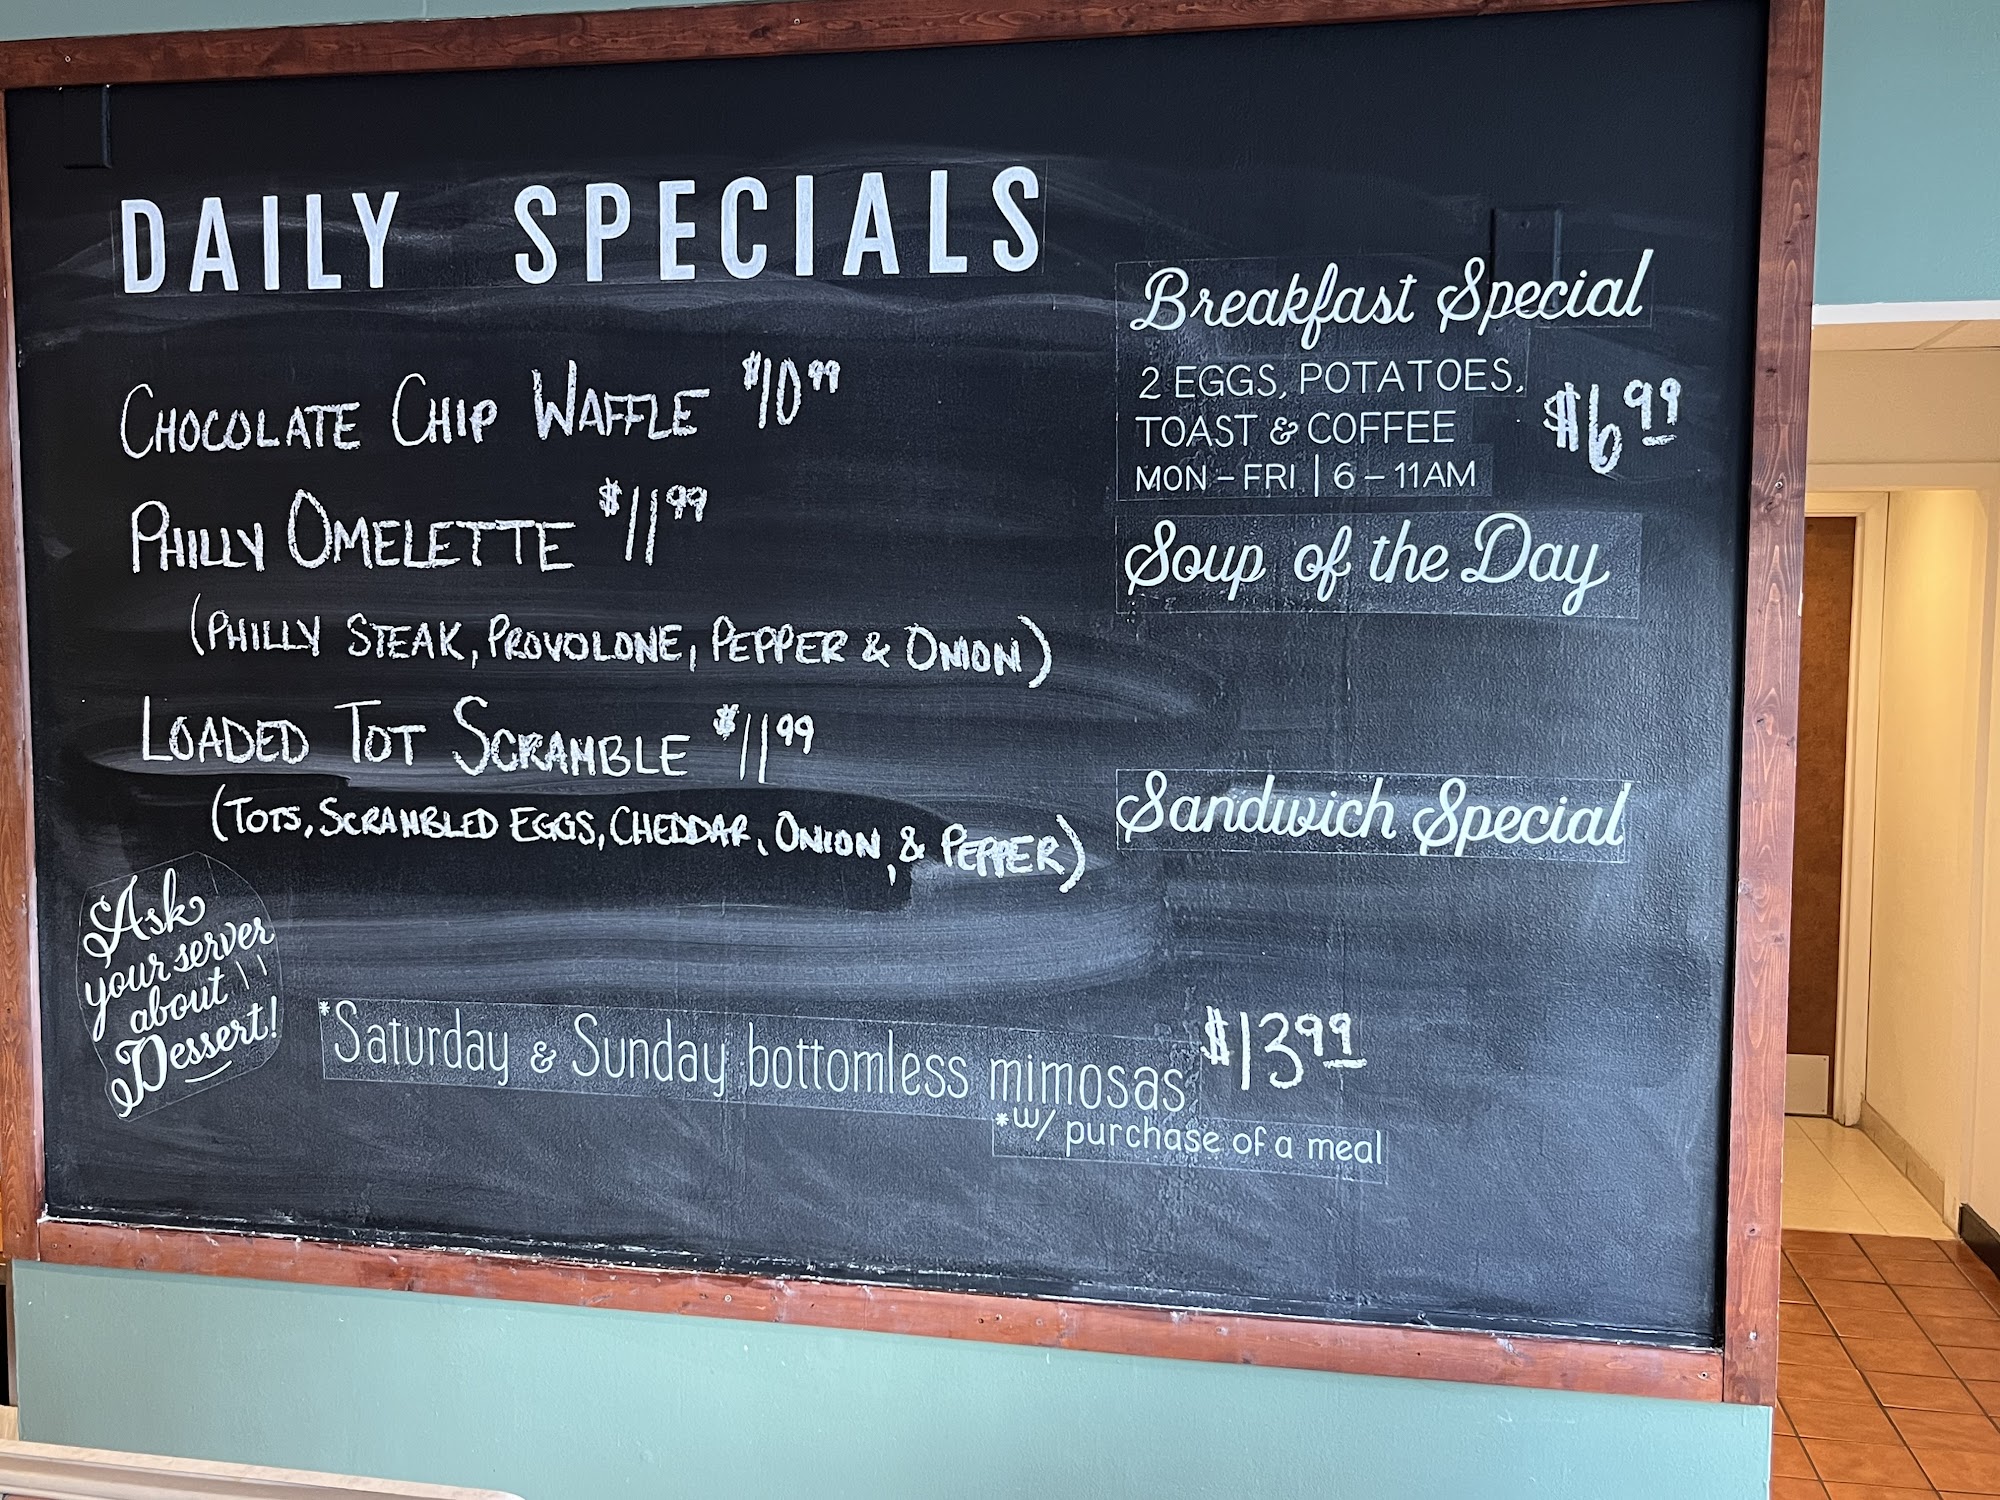 DAILY SPECIALS
CHOCOLATE CHIP WAFFLE $10.99
PHILLY OMELETTE $11.99
(PHILLY STEAK, PROVOLONE, PEPPER & ONION)
LOADED TOT SCRAMBLE $11.99
(TOTS, SCRAMBLED EGGS, CHEDDAR, ONION, & PEPPER)
Breakfast Special
2 EGGS, POTATOES,
TOAST & COFFEE
MON – FRI | 6 – 11AM
$6.99
Soup of the Day
Sandwich Special
Ask
your server
about
Dessert!
*Saturday & Sunday bottomless mimosas $13.99
*w/ purchase of a meal